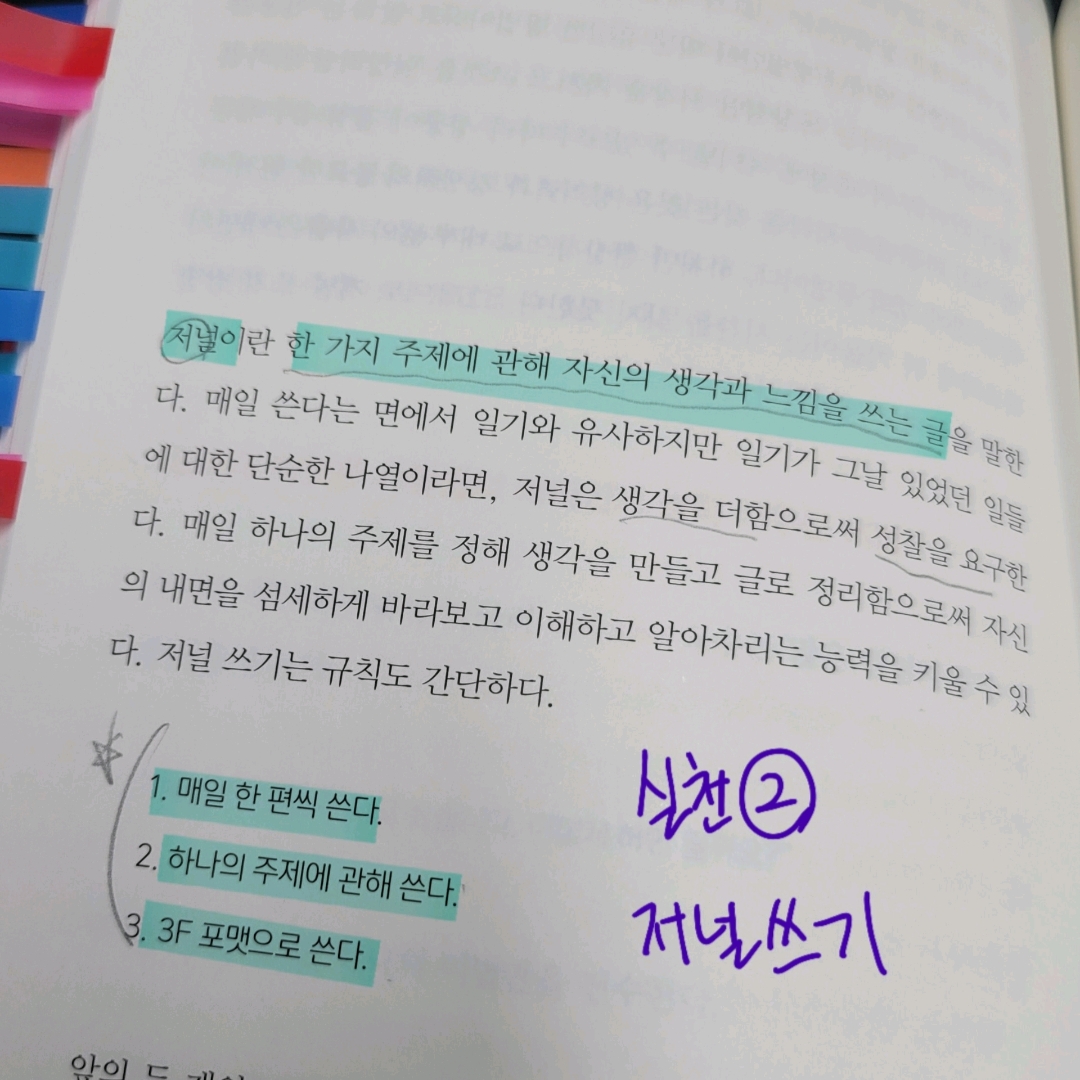 저널이란 한 가지 주제에 관해 자신의 생각과 느낌을 쓰는 글을 말한
다. 매일 쓴다는 면에서 일기와 유사하지만 일기가 그날 있었던 일들
에 대한 단순한 나열이라면, 저널은 생각을 더함으로써 성찰을 요구한
다. 매일 하나의 주제를 정해 생각을 만들고 글로 정리함으로써 자신
의 내면을 섬세하게 바라보고 이해하고 알아차리는 능력을 키울 수 있
다. 저널 쓰기는 규칙도 간단하다.
1. 매일 한 편씩 쓴다.
2. 하나의 주제에 관해 쓴다.
3. 3F 포맷으로 쓴다.
실천 ②
저널쓰기
앞의 두